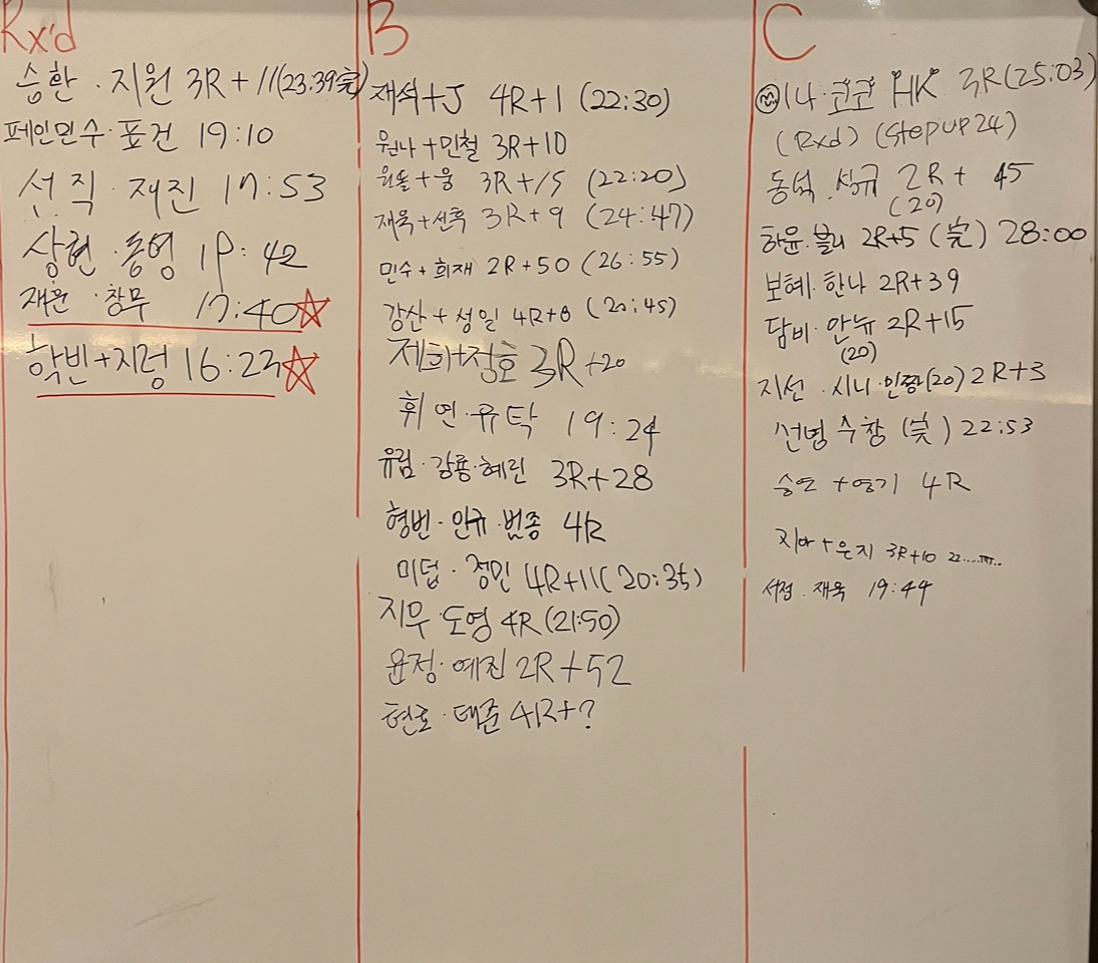 Rx'd
승환 · 지원 3R + 11 (23:39完)
페인민수 · 표건 19:10
선직 · 재진 17:53
상현 · 동영 19:42
재윤 · 창무 17:40☆
학빈+지렁 16:23☆
B
재석+J 4R+1 (22:30)
원나+민철 3R+10
원솔+웅 3R+15 (22:20)
재욱+선혹 3R+9 (24:47)
민수+희재 2R+50 (26:55)
강산+성일 4R+8 (20:45)
제희+정호 3R+20
휘연·유탁 19:24
유림·강룡·혜린 3R+28
형번·인규·범종 4R
미덥·정민 4R+11 (20:35)
지우·도영 4R (21:50)
윤정·예진 2R+52
현호·태준 4R+?
C
이나·코코 HK 3R (25:03)
(Rxd) (Step up 24)
동석 성규 2R + 45
(20)
하윤·블리 2R+5 (完) 28:00
보혜·한나 2R+39
담비·안뉴 2R+15
(20)
지선 · 시니·인짱(20) 2R+3
선명 수창 (完) 22:53
승연 + 영기 4R
지아+은지 3R+10 22.....
서정 · 재욱 19:49